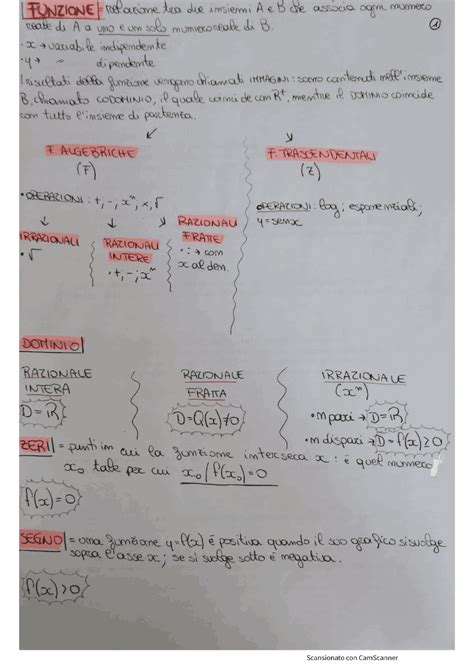 FUNZIONE = relazione tra due insiemi A e B che associa ogni numero
reale di A a uno e un solo numero reale di B.
①
• x → variabile indipendente
• y → " dipendente
I risultati della funzione vengono chiamati IMMAGINI: sono contenuti nell'insieme
B, chiamato CODOMINIO, il quale coincide con R⁺, mentre il DOMINIO coincide
con tutto l'insieme di partenza.
F. ALGEBRICHE
(F)
F. TRASCENDENTALI
(Z)
• OPERAZIONI: +, -, xⁿ, ×, √
OPERAZIONI: log; esponenziali;
y = senx
IRRAZIONALI
• √
RAZIONALI
INTERE
• +, -, xⁿ
RAZIONALI
FRATTE
• : → con
x al den.
DOMINIO
RAZIONALE
INTERA
D = R
RAZIONALE
FRATTA
D = Q(x) ≠ 0
IRRAZIONALE
(xⁿ)
• n pari → D = R
• n dispari → D = f(x) ≥ 0
ZERI = punti in cui la funzione interseca x: è quel numero
x₀ tale per cui x₀ / f(x₀) = 0
f(x) = 0
SEGNO = una funzione y = f(x) è positiva quando il suo grafico si svolge
sopra l'asse x; se si svolge sotto è negativa.
f(x) > 0
Scansionato con CamScanner